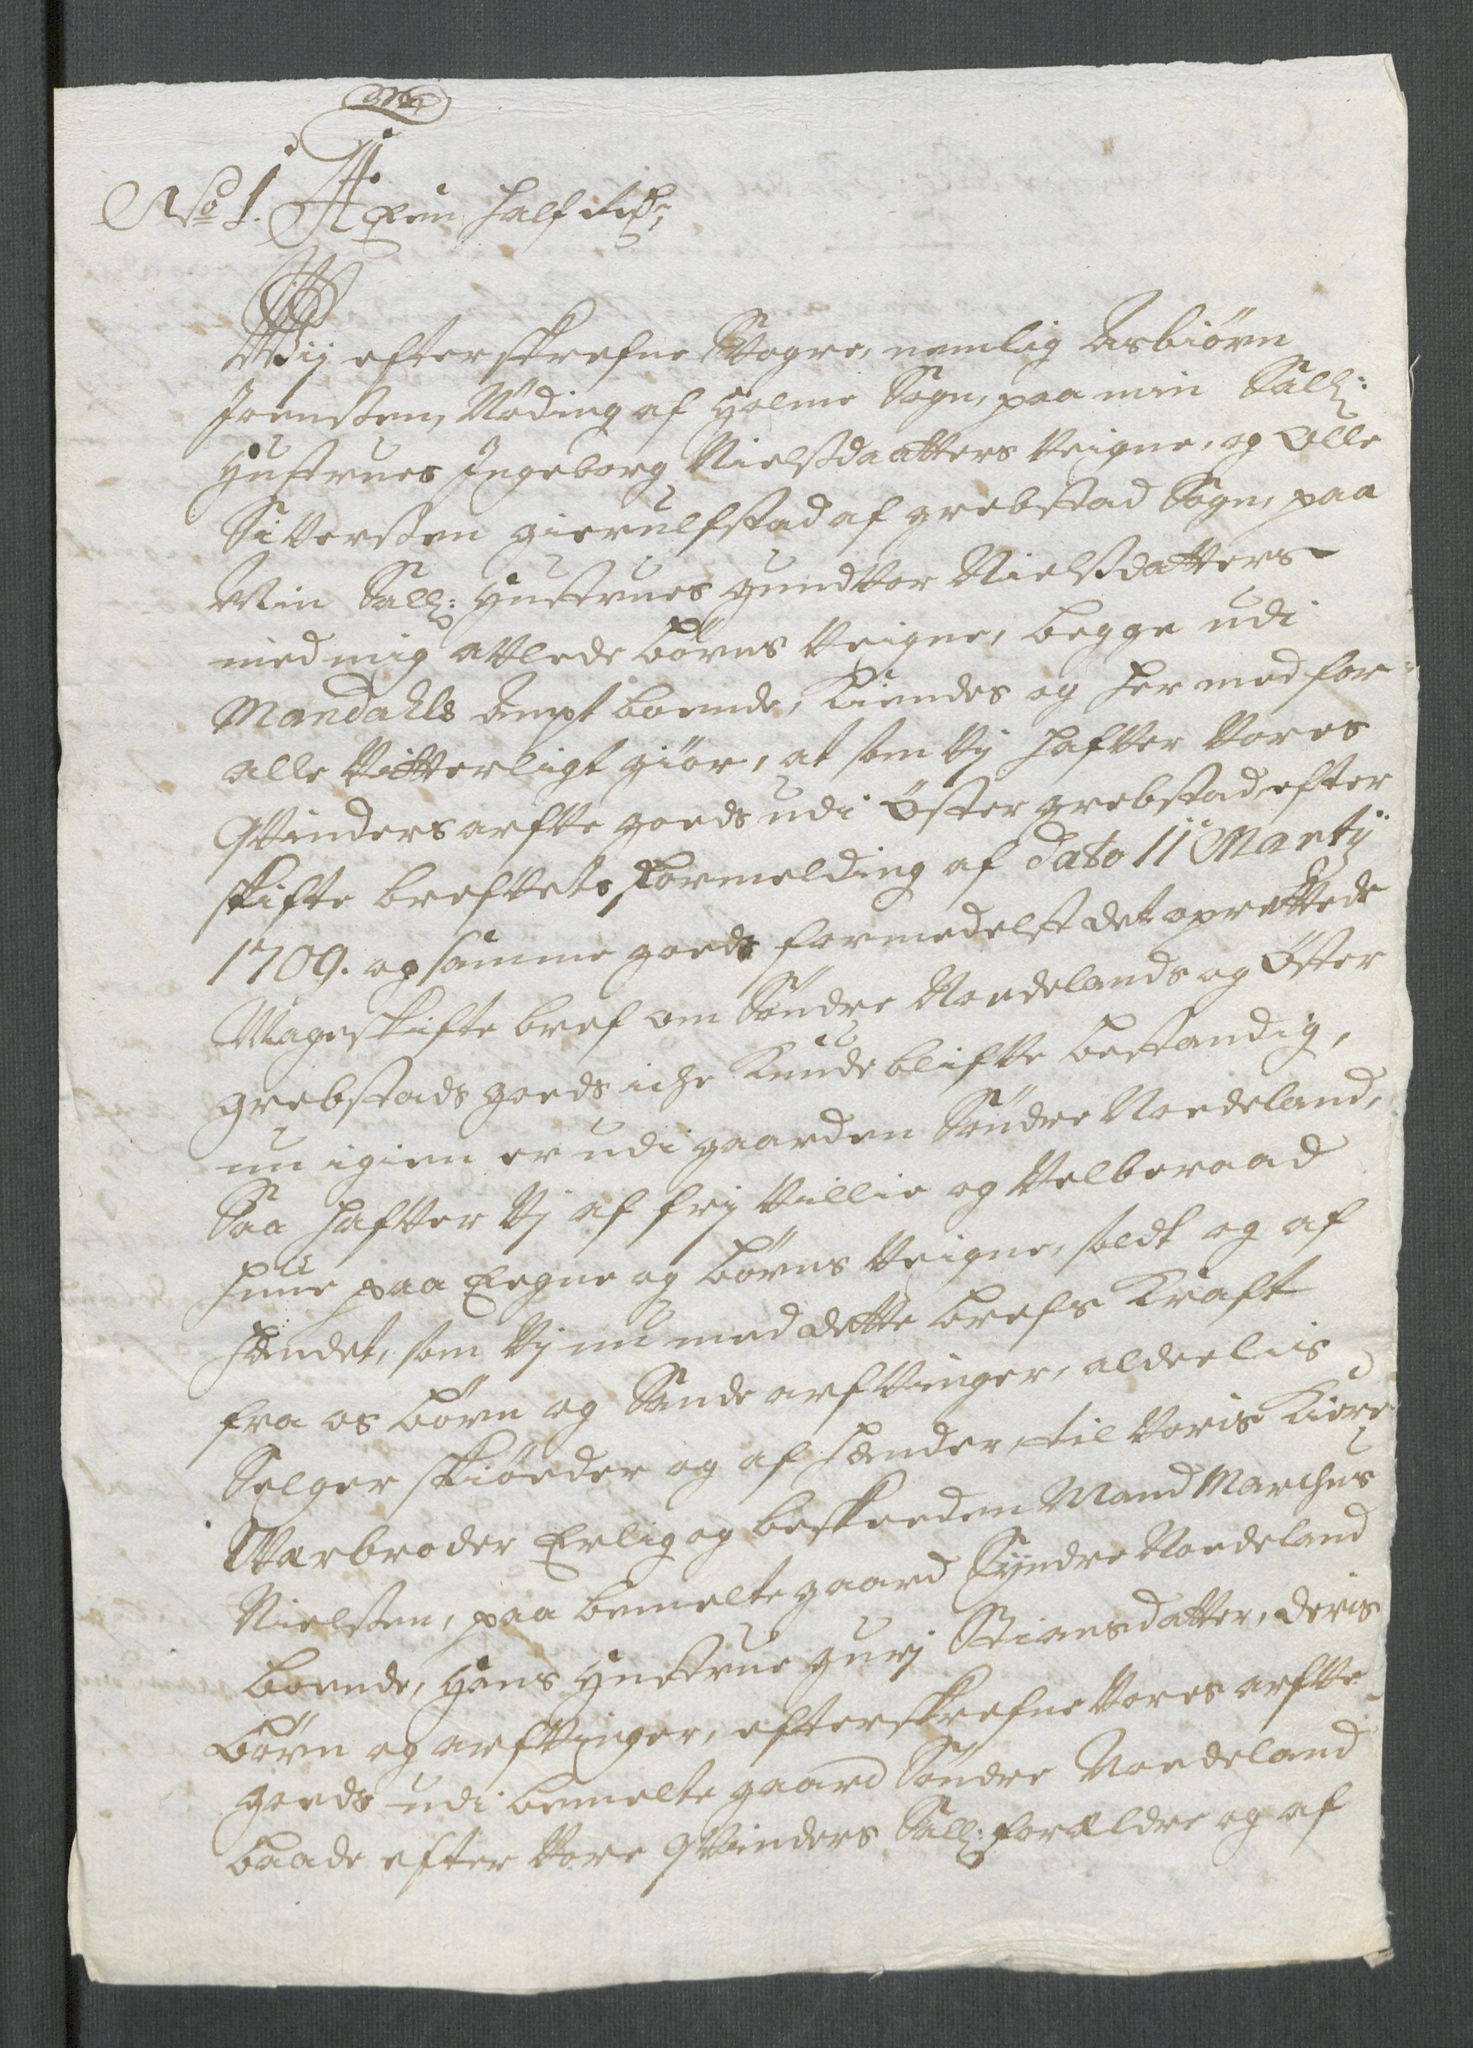 No 1. A Een half rixd:
Wij efterskrefne Svogre, nemlig Asbiørn
Joenssen, Nøding af Holme Sogn, paa min Sall:
Hustrues Ingeborg Nielssdaatters Veigne, og Olle
Sivverssen gierulfstad af grebstad Sogn, paa
Min Sall: Hustrues gundvor Nielssdatters
med mig avlede børns Veigne, begge udi
Mandahls Ampt boende, Kiendes og her med for
alle Vitterligt giør, at som Vj hafver Vores
Qvinders arfve goeds udi Øster grebstad, efter
skifte brefvets formelding af dato 11 Martij
1709. og samme goeds formedelst det oprettede
Mageskifte bref om Søndre Nordelands og Øster
grebstads goeds iche Kunde blifve bestandig,
nu igien er udi gaarden Søndre Nordeland,
Saa hafver Vj af frj Villie og Velberaad
hue paa Eegne og børns Veigne, soldt og af
hendet, som Vj nu med dette brefs Kraft
fra os børn og Sande arfvinger, aldeelis
Selger skiøder og af hender, til Voris Kiere
Værbroder Erlig og beskeeden Mand Marchus
Nielssen, paa bemelte gaard Syndre Nordeland
boende, Hans Hustrue gurj Stiansdatter, deris
børn og arfvinger, efterskrefne Vores arfve
goeds udi bemelte gaard Søndre Nordeland
baade efter Vore Qvinders Sall: forældre og af